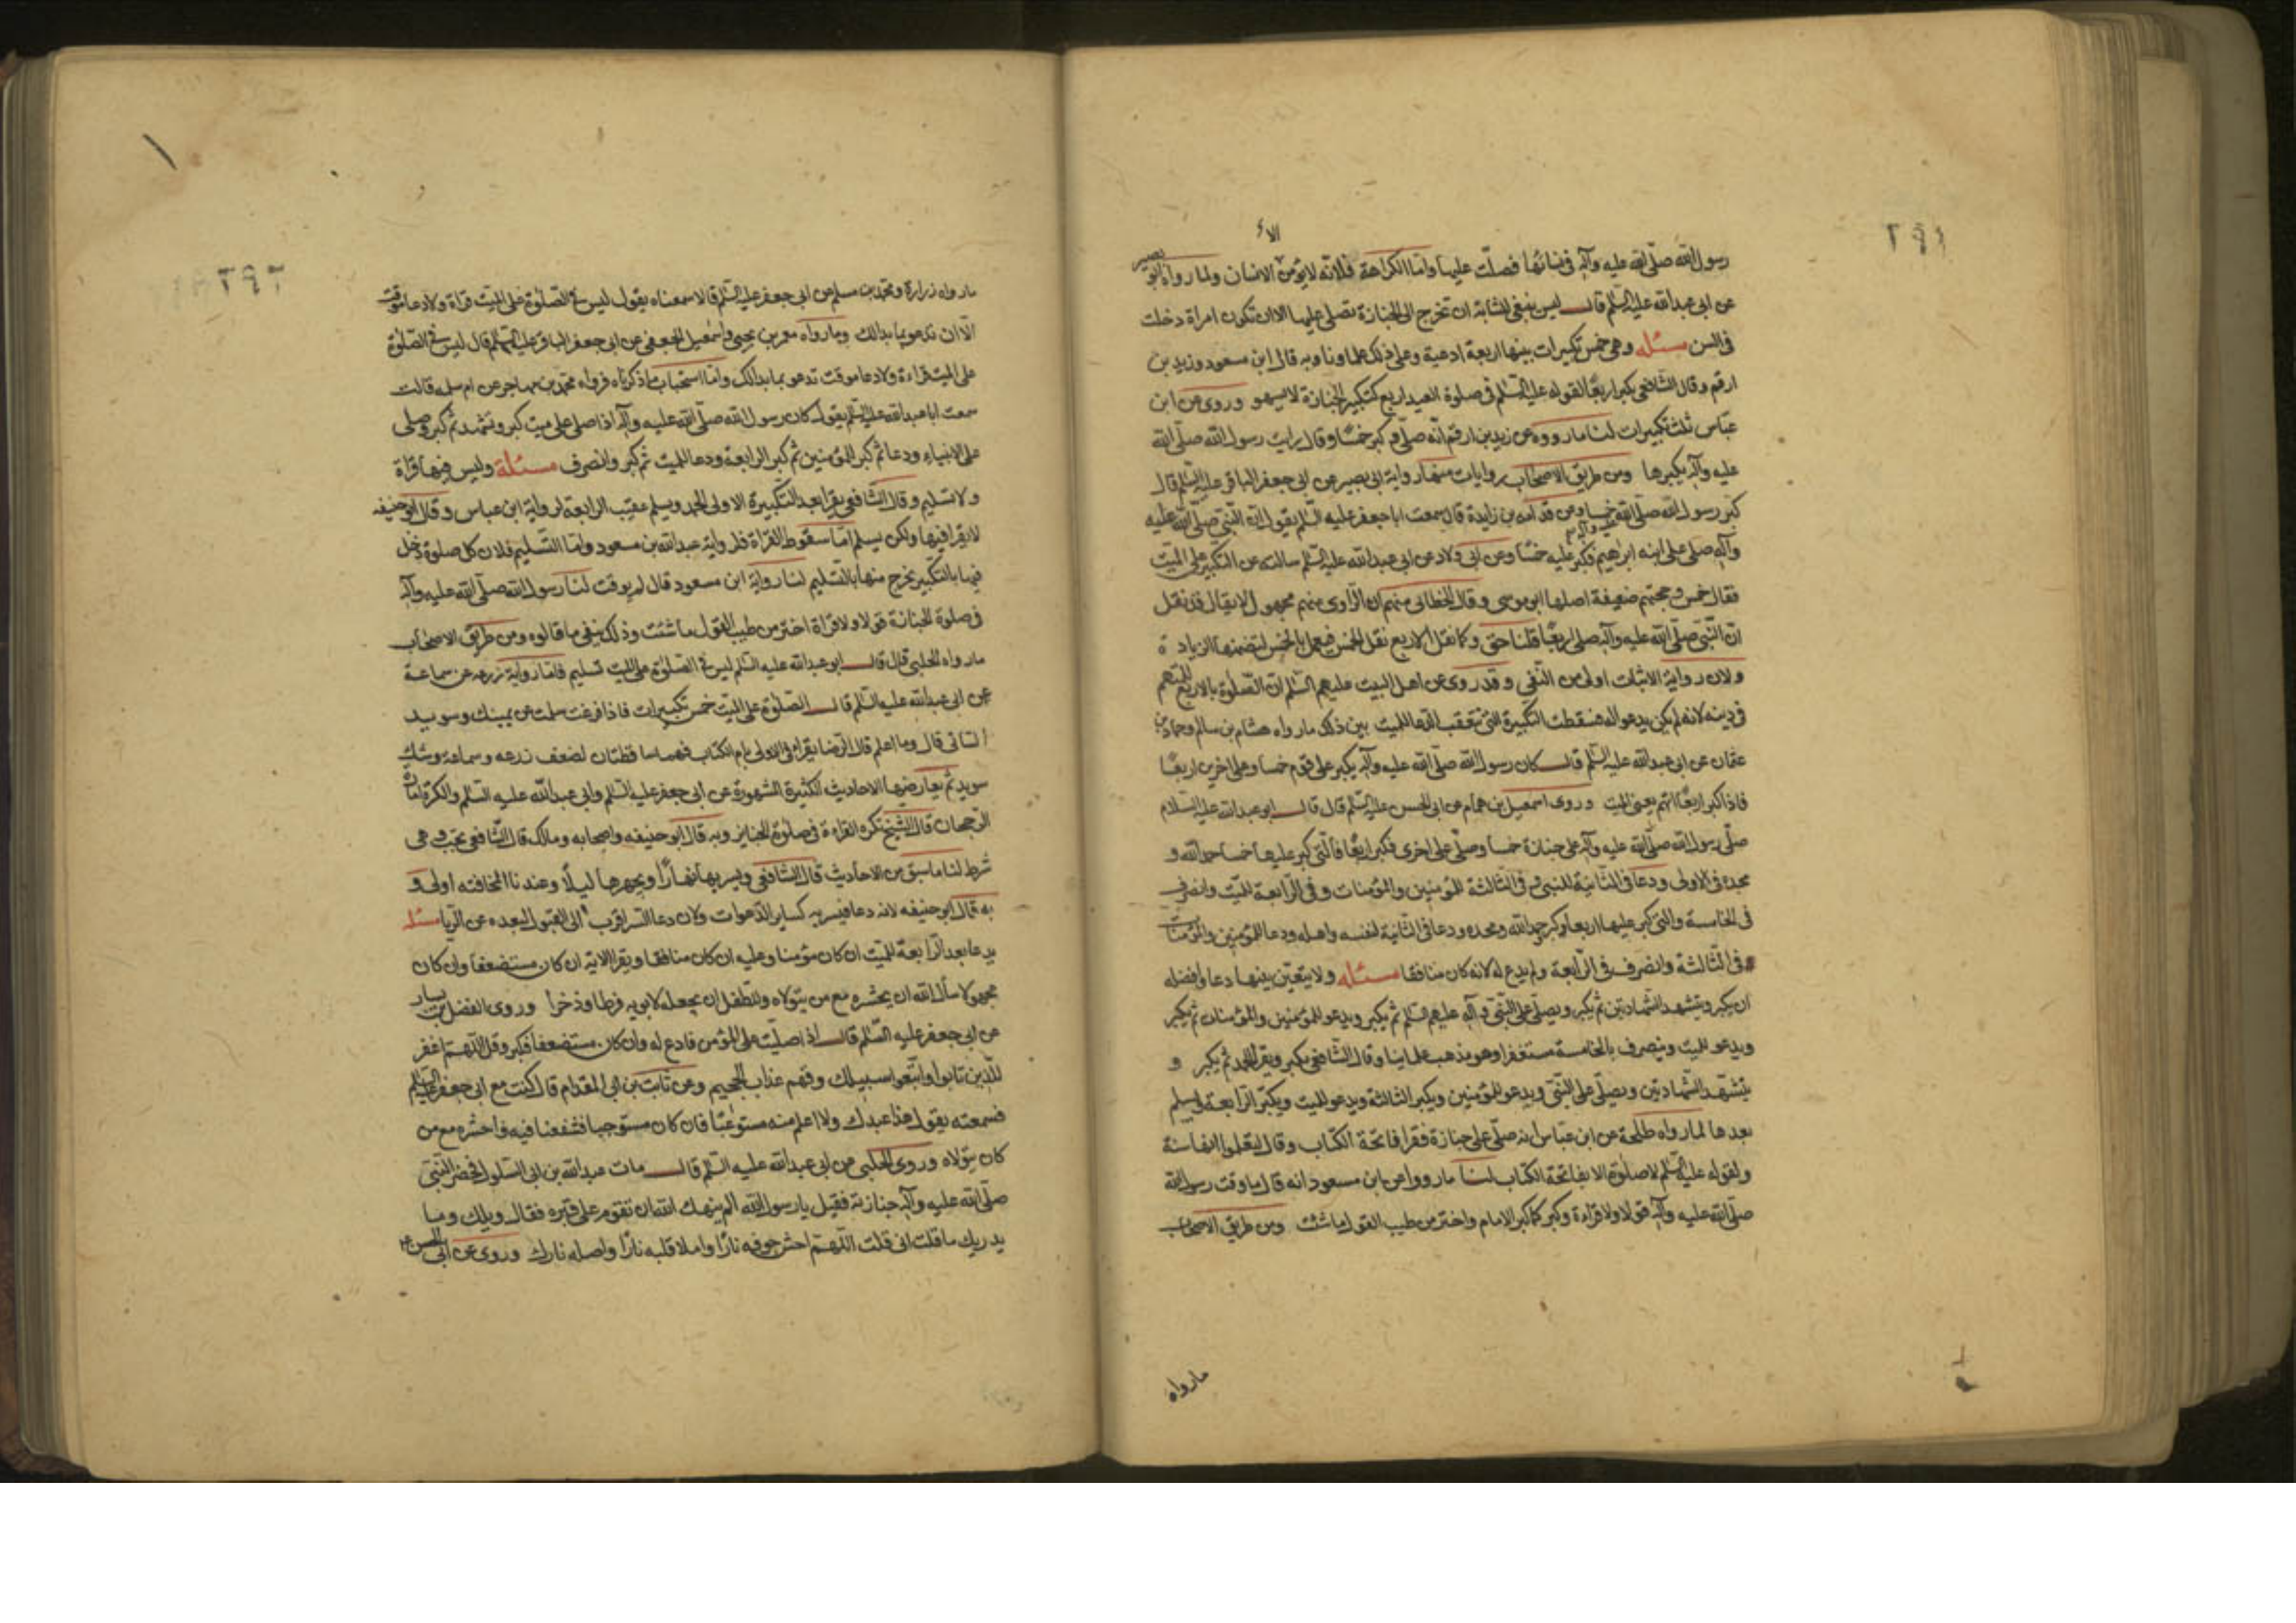 ٢٩١
الا
رسول الله صلّى الله عليه وآله فى نسائها فصلّت عليها وامّا الكراهة فلانّه لا يؤمن الافتتان ولما رواه ابو بصير
عن ابى عبدالله عليه السّلم قال ليس ينبغى للشابّة ان تخرج الى الجنازة تصلى عليها الا ان تكون امراة دخلت
فى السن مسئله وهى خمس تكبيرات بينها اربعة ادعية وعلى ذلك علماونا وبه قال ابن مسعود وزيد بن
ارقم وقال الشافعى يكبر اربعًا لقوله عليه السّلم فى صلوة العيد اربع كتكبير الجنازة لا تسهو وروى عن ابن
عبّاس ثلث تكبيرات لنا ما رووه عن زيد بن ارقم انّه صلّى فكبر خمسًا وقال رايت رسول الله صلّى الله
عليه وآله يكبرها ومن طريق الاصحاب روايات منها رواية ابى بصير عن ابى جعفر الباقر عليه السّلم قال
كبّر رسول الله صلّى الله عليه وآله خمسا ومن قدامه بن زايدة قال سمعت ابا جعفر عليه السّلم يقول انّ النّبى صلّى الله عليه
وآله صلى على ابنه ابراهيم فكبّر عليه خمسًا وعن ابى ولاد عن ابى عبدالله عليه السّلم سالته عن التكبير على الميّت
فقال خمس وحجتهم ضعيفة اصلها ابو موسى وقال الخطابى منهم ان الرّاوى منهم مجهول لا يقال قد نقل
انّ النّبى صلّى الله عليه وآله صلى اربعًا قلنا حق وكما نقل الاربع نقل الخمس فيعمل بالخمس لتضمنها الزيادة
ولان رواية الاثبات اولى من النّفى وقد روى عن اهل البيت عليهم السّلم انّ الصّلوة بالاربع للمتّهم
فى دينه لانه لم يكن يدعو له فسقطت التكبيرة التى يتعقب الدعا للميت بين ذلك ما رواه هشام بن سالم وحماد بن
عثمان عن ابى عبدالله عليه السّلم قال كان رسول الله صلّى الله عليه وآله يكبر على قوم خمسا وعلى اخرين اربعًا
فاذا كبر اربعًا اتهم يعنى الميت وروى اسمعيل بن همام عن ابى الحسن عليه السّلم قال قال ابو عبدالله عليه السلام
صلّى رسول الله صلّى الله عليه وآله على جنازة خمسا وصلّى على اخرى فكبر اربعًا فالّتى كبر عليها خمسا حمد الله و
مجده فى الاولى ودعا فى الثانية للنبى وفى الثالثة للمؤمنين والمؤمنات وفى الرّابعة للميّت وانصرف
فى الخامسة والتى كبر عليها اربعا وكبر حمد الله ومجده ودعا فى الثانية لنفسه واهله ودعا للمؤمنين والمؤمنات
فى الثالثة وانصرف فى الرّابعة ولم يدع له لانه كان منافقا مسئله ولا يتعيّن بينها دعا وافضله
ان يكبر ويتشهد الشهادتين ثم يكبر ويصلّى على النّبى وآله عليهم السّلم ثم يكبر ويدعو للمؤمنين والمؤمنات ثم يكبر
ويدعو للميت وينصرف بالخامسة مستغفرا وهو مذهب علماينا وقال الشّافعى يكبر ويقرا الحمد ثم يكبر و
يتشهّد الشّهادتين ويصلّى على النّبى ويدعو للمؤمنين ويكبر الثالثة ويدعو للميت ويكبّر الرّابعة ويسلم
بعدها لما رواه طلحة عن ابن عبّاس انه صلّى على جنازة فقرا فاتحة الكتاب وقال ليعلموا انها سنة
ولقوله عليه السّلم لا صلوة الا بفاتحة الكتاب لنا ما رووا عن ابن مسعود انه قال ما وقت رسول الله
صلّى الله عليه وآله قولا ولا قراءة وكبر كما كبر الامام واختر من طيب القول ما شئت ومن طريق الاصحاب
ما رواه
٢٩٢
ما رواه زرارة ومحمّد بن مسلم عن ابى جعفر عليه السّلم قالا سمعناه يقول ليس فى الصّلوة على الميّت قراة ولا دعا موقت
الّا ان تدعو بما بدا لك وما رواه معمر بن يحيى واسمعيل الجعفى عن ابى جعفر الباقر عليه السّلم قال ليس فى الصّلوة
على الميت قراءة ولا دعا موقت تدعو بما بدا لك وامّا استحباب ما ذكرناه فرواه محمّد بن مهاجر عن ام سلمه قالت
سمعت ابا عبدالله عليه السّلم يقول كان رسول الله صلّى الله عليه وآله اذا صلى على ميت كبر وتشهد ثم كبر وصلى
على الانبياء ودعا ثم كبر للمؤمنين ثم كبر الرابعة ودعا للميت ثم كبر وانصرف مسئلة وليس فيها قراة
ولا تسليم وقال الشّافعى يقرا بعد التكبيرة الاولى الحمد ويسلم عقيب الرابعة لرواية ابن عباس وقال ابو حنيفه
لا يقرا فيها ولكن يسلم امّا سقوط القراة فلرواية عبدالله بن مسعود وامّا التسليم فلان كل صلوة دخل
فيها بالتكبير يخرج منها بالتسليم لنا رواية ابن مسعود قال لم يوقت لنا رسول الله صلّى الله عليه وآله
فى صلوة الجنازة قولا ولا قراة اختر من طيب القول ما شئت وذلك ينفى ما قالوه ومن طريق الاصحاب
ما رواه الحلبى قال قال ابو عبدالله عليه السّلم ليس فى الصّلوة على الميّت تسليم فامّا رواية زرعه عن سماعة
عن ابى عبدالله عليه السّلم قال الصّلوة على الميّت خمس تكبيرات فاذا فرغت سلمت عن يمينك وسويد
السانى قال وما اعلم قال الرّضا يقرا فى الاولى بام الكتاب فهما ساقطتان لضعف زرعه وسماعة وشك
سويد ثم يعارضها الاحاديث الكثيرة المشهورة عن ابى جعفر عليه السّلم وابى عبدالله عليه السلم والكثرة امارة
الرّجحان قال الشيخ تكره القراءة فى صلوة الجنايز وبه قال ابو حنيفه واصحابه ومالك قال الشّافعى تجب وهى
شرط لنا ما سبق من الاحاديث قال الشافعى ويسر بها نهارًا ويجهر بها ليلًا وعندنا المخافته اولى و
به قال ابو حنيفه لانه دعا فيسر به كساير الدّعوات ولان دعا السر اقرب الى القبول لبعده عن الرّيا مسئله
يدعا بعد الرّابعة للميّت ان كان مؤمنا وعليه ان كان منافقا ويقرا الاية ان كان مستضعفا وان كان
مجهولا سال الله ان يحشره مع من يتولاه وللطفل ان يجعله لابويه فرطا وذخرا وروى الفضل بن يسار
عن ابى جعفر عليه السّلم قال اذا صليت على المؤمن فادع له وان كان مستضعفا فكبر وقل اللّهم اغفر
للّذين تابوا واتّبعوا سبيلك وقهم عذاب الجحيم وعن ثابت بن ابى المقدام قال كنت مع ابى جعفر عليه السّلم
فسمعته يقول هذا عبدك ولا اعلم منه فان كان مستوجبا فشفعنا فيه واحشره مع من
كان يتولاه وروى الحلبى عن ابى عبدالله عليه السّلم قال مات عبدالله بن ابى السّلول فحضر النّبى
صلّى الله عليه وآله جنازته فقيل يا رسول الله الم ينهك الله ان تقوم على قبره فقال ويلك وما
يدريك ما قلت انى قلت اللّهم احش جوفه نارًا واملا قلبه نارًا واصله نارك وروى عن ابى الحسن